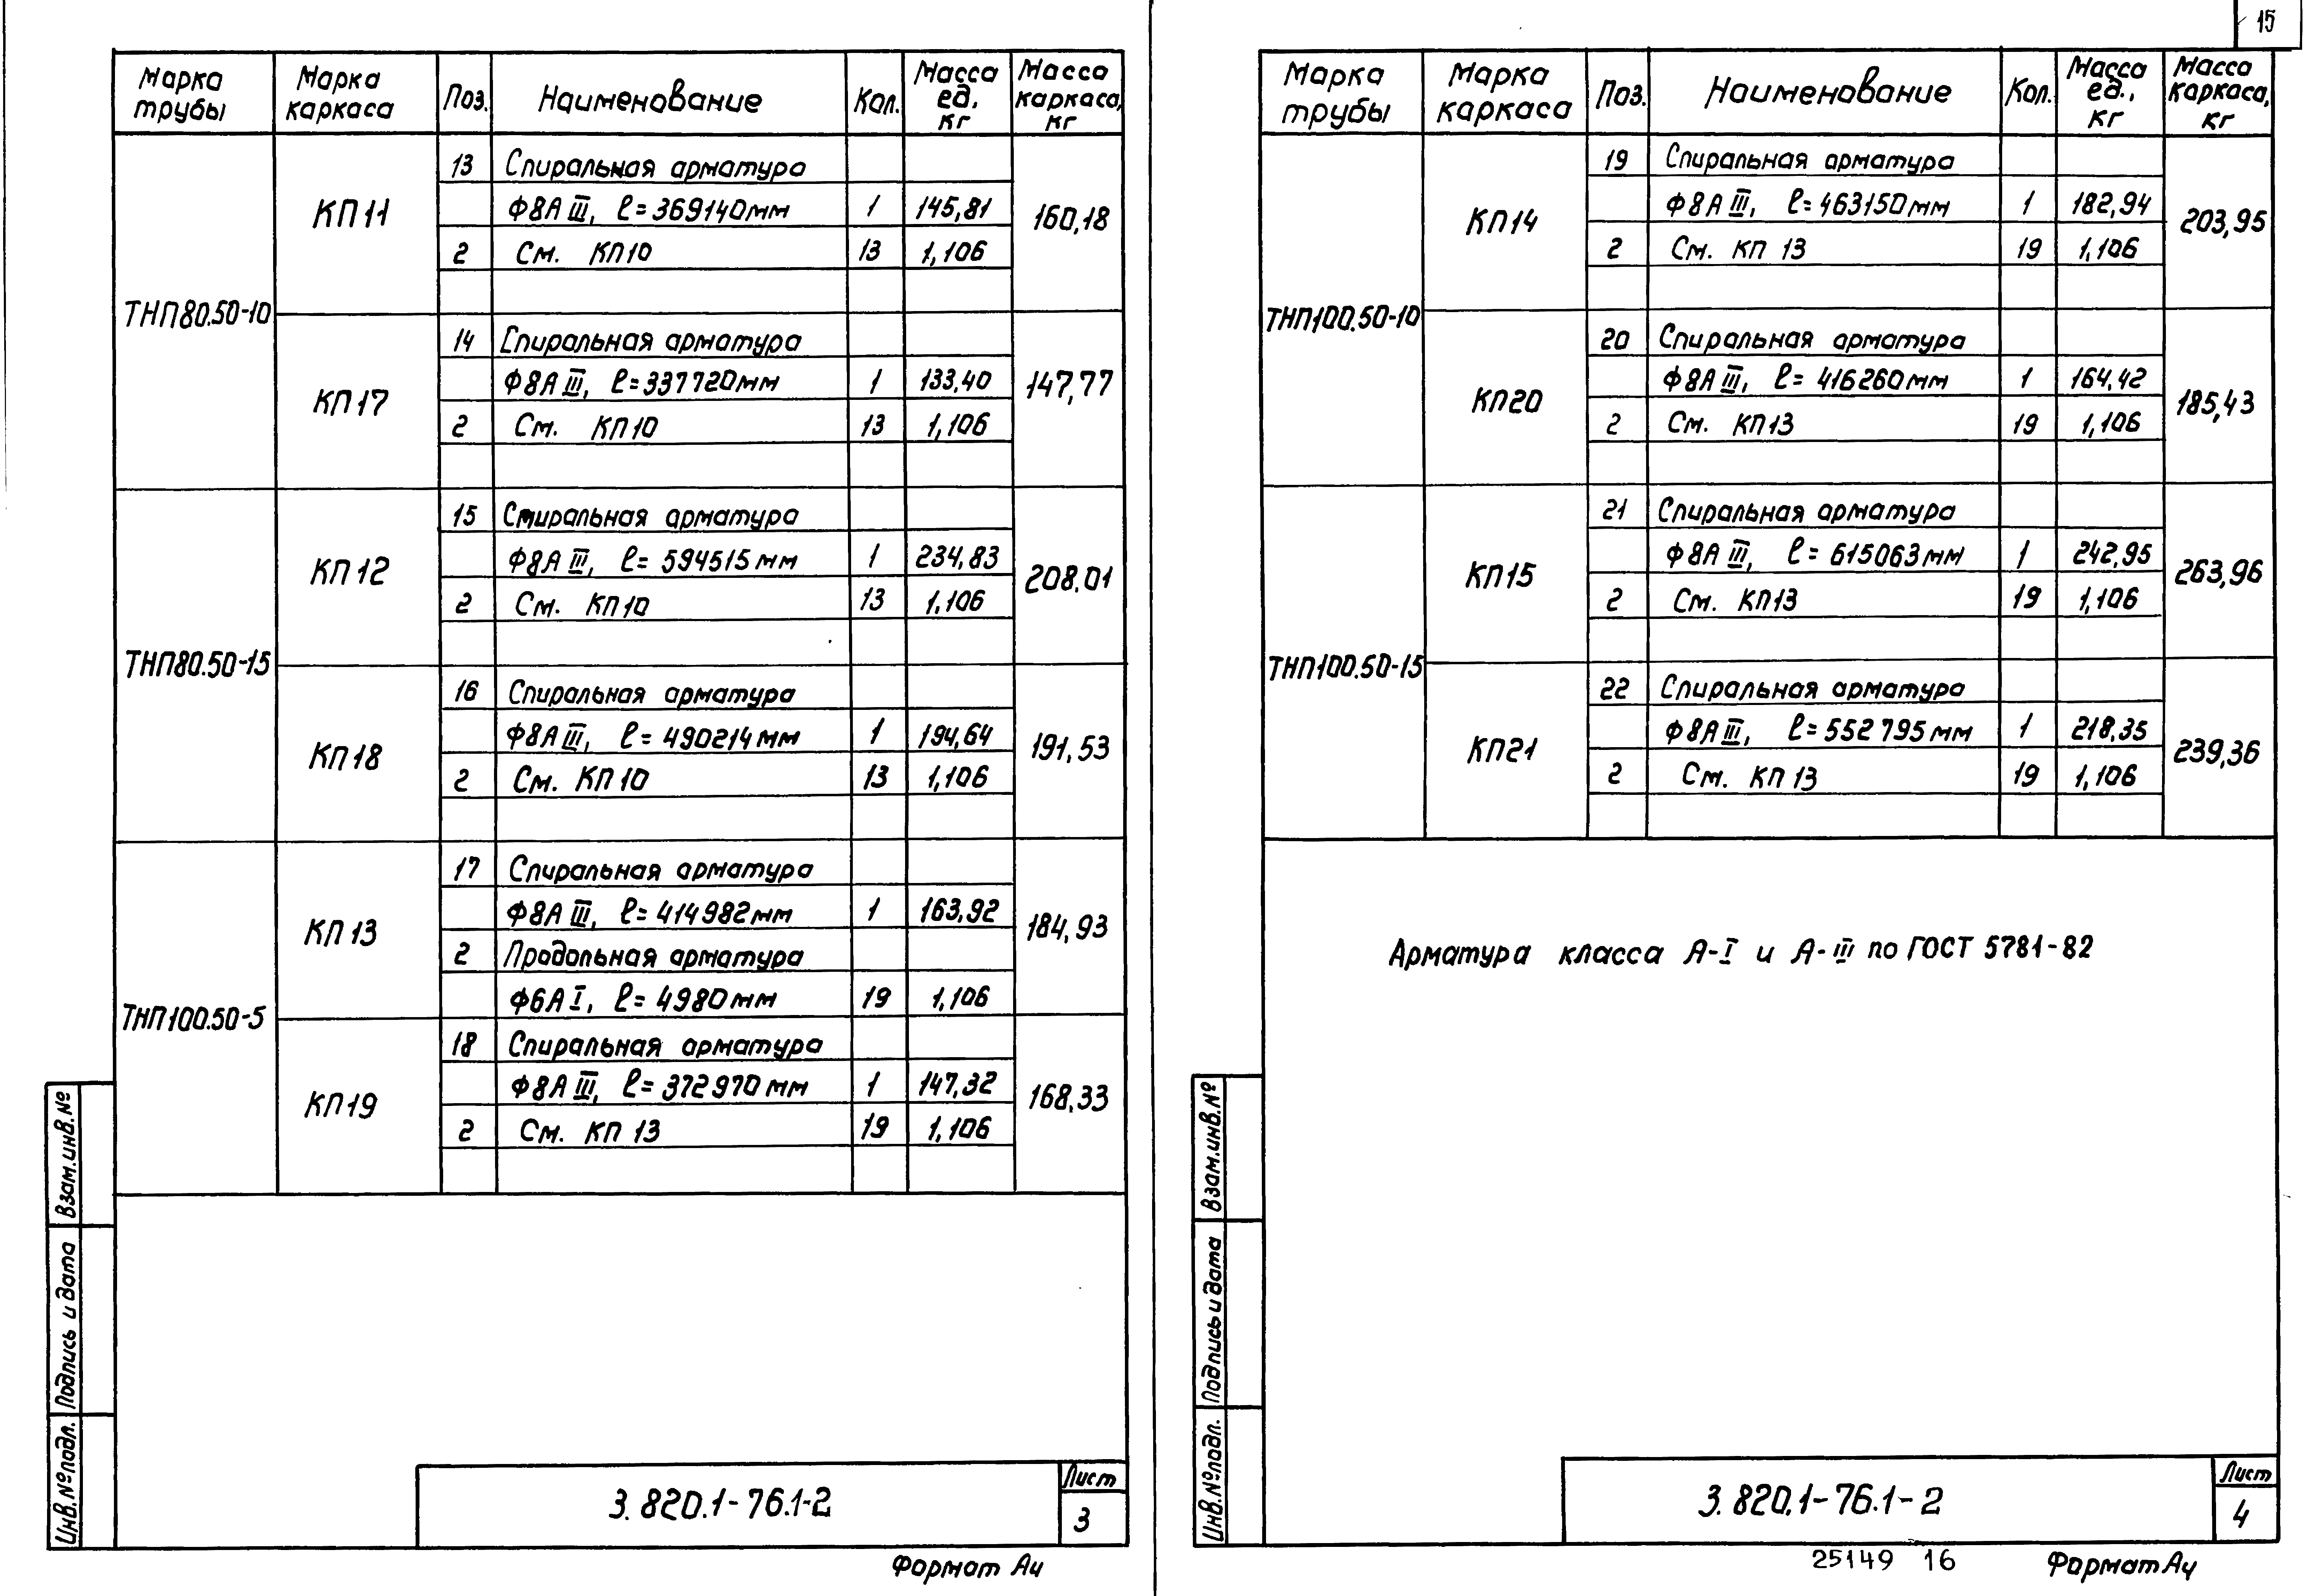 Марка трубы | Марка каркаса | Поз. | Наименование | Кол. | Масса ед., кг | Масса каркаса, кг
ТНП80.50-10 | КП11 | 13 | Спиральная арматура | 160,18
Ф8АIII, ℓ=369140мм | 1 | 145,81
2 | См. КП10 | 13 | 1,106
КП17 | 14 | Спиральная арматура | 147,77
Ф8АIII, ℓ=337720мм | 1 | 133,40
2 | См. КП10 | 13 | 1,106
ТНП80.50-15 | КП12 | 15 | Спиральная арматура | 208.01
Ф8АIII, ℓ=594515мм | 1 | 234,83
2 | См. КП10 | 13 | 1,106
КП18 | 16 | Спиральная арматура | 191,53
Ф8АIII, ℓ=490214мм | 1 | 194,64
2 | См. КП10 | 13 | 1,106
ТНП100.50-5 | КП13 | 17 | Спиральная арматура | 184,93
Ф8АIII, ℓ=414982мм | 1 | 163,92
2 | Продольная арматура
Ф6АI, ℓ=4980мм | 19 | 1,106
КП19 | 18 | Спиральная арматура | 168,33
Ф8АIII, ℓ=372970мм | 1 | 147,32
2 | См. КП13 | 19 | 1,106
Взам.инв.№
Подпись и дата
Инв.№подл.
3.820.1-76.1-2
Лист
3
Формат А4
15
Марка трубы | Марка каркаса | Поз. | Наименование | Кол. | Масса ед., кг | Масса каркаса, кг
ТНП100.50-10 | КП14 | 19 | Спиральная арматура | 203,95
Ф8АIII, ℓ=463150мм | 1 | 182,94
2 | См. КП 13 | 19 | 1,106
КП20 | 20 | Спиральная арматура | 185,43
Ф8АIII, ℓ=416260мм | 1 | 164,42
2 | См. КП13 | 19 | 1,106
ТНП100.50-15 | КП15 | 21 | Спиральная арматура | 263,96
Ф8АIII, ℓ=615063мм | 1 | 242,95
2 | См. КП13 | 19 | 1,106
КП21 | 22 | Спиральная арматура | 239,36
Ф8АIII, ℓ=552795мм | 1 | 218,35
2 | См. КП 13 | 19 | 1,106
Арматура класса А-I и А-III по ГОСТ 5781-82
Взам.инв.№
Подпись и дата
Инв.№подл.
3.820.1-76.1-2
Лист
4
25149 16
Формат А4